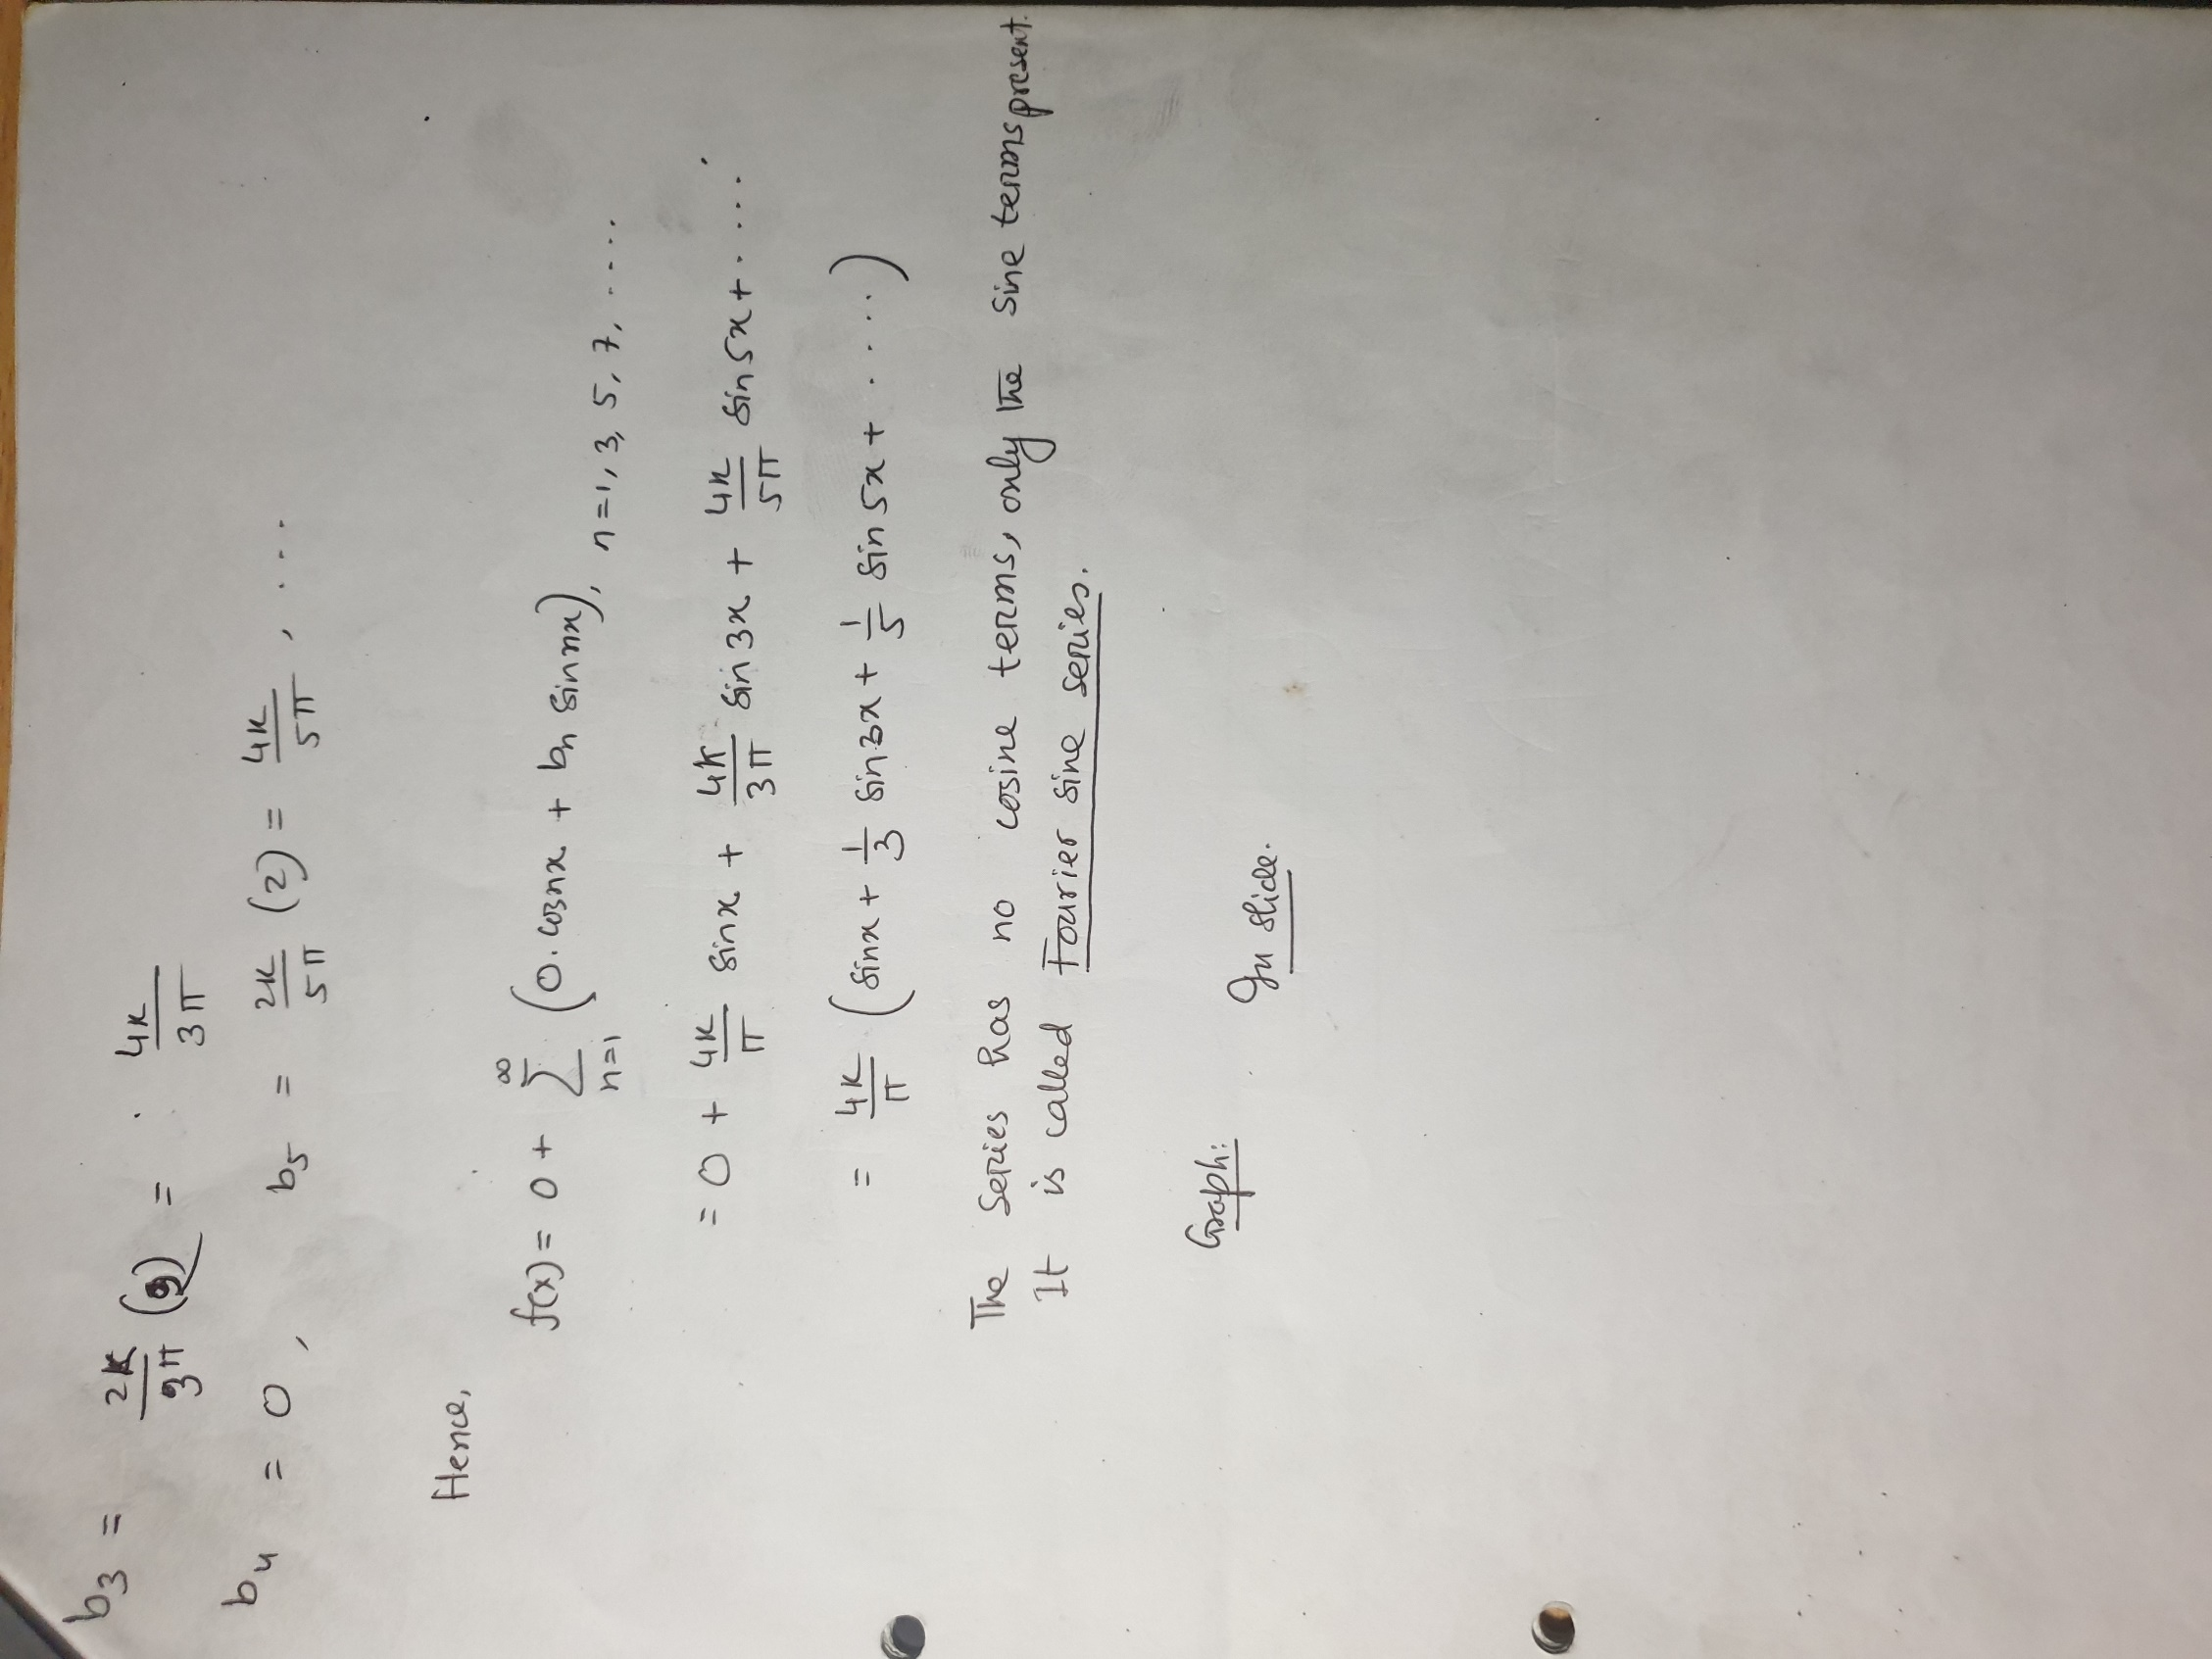 b₃ = 2K/3π (2) = 4K/3π
b₄ = 0, b₅ = 2K/5π (2) = 4K/5π, ...
Hence,
f(x) = 0 + ∑_{n=1}^{∞} (0. cosnx + bₙ sinnx), n=1, 3, 5, 7, ....
= 0 + 4K/π sinx + 4K/3π sin3x + 4K/5π sin5x + .....
= 4K/π (sinx + 1/3 sin3x + 1/5 sin5x + ....)
The series has no cosine terms, only the sine terms present.
It is called Fourier sine series.
Graph: In slide.